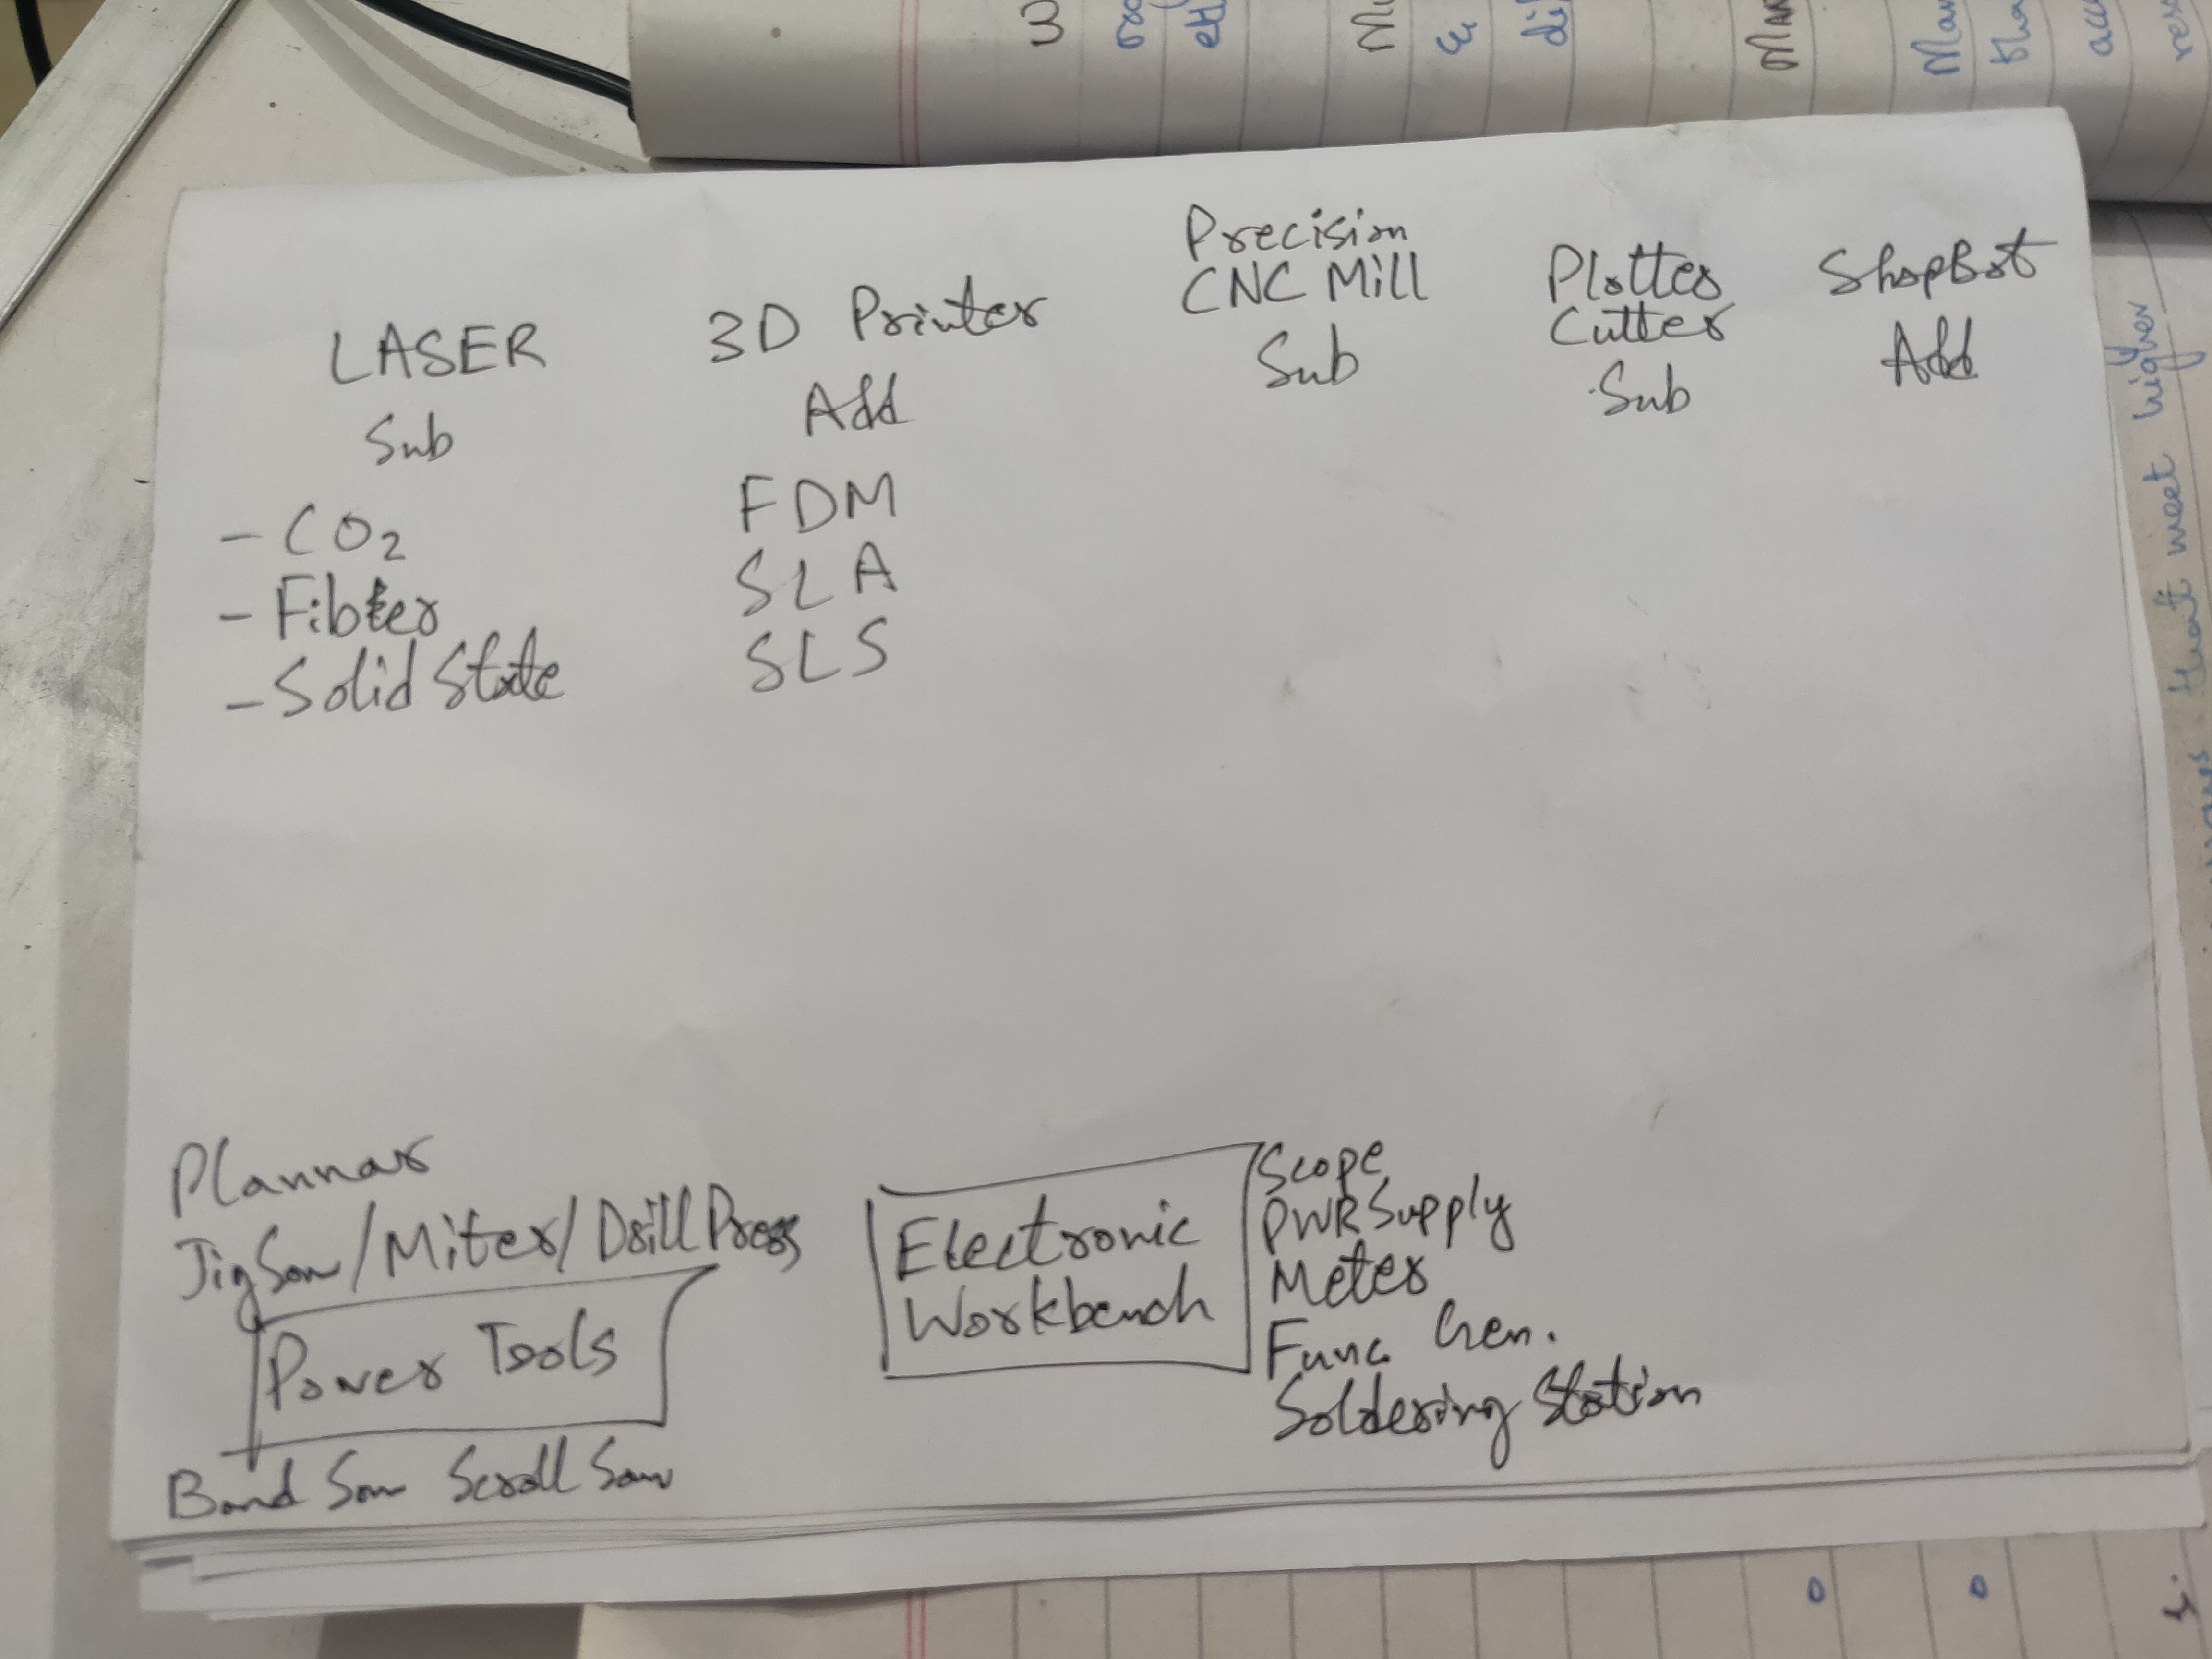 LASER
Sub
- CO2
- Fibter
- Solid State
3D Printer
Add
FDM
SLA
SLS
Precision
CNC Mill
Sub
Plotter
Cutter
Sub
ShopBot
Add
Plannar
JigSaw/Miter/Drill Press
Power Tools
Band Saw Scroll Saw
Electronic
Workbench
Scope
PWR Supply
Meter
Func Gen.
Soldering Station
that meet higher